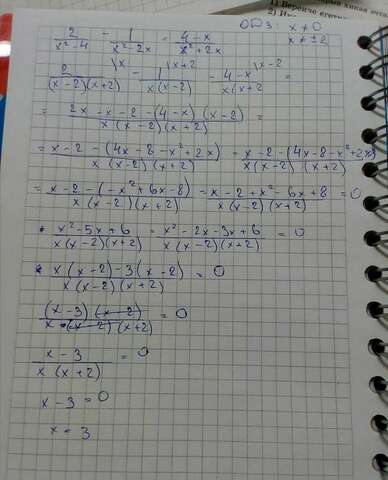 1) Верните
2) И
ОДЗ: x ≠ 0
x ≠ ±2
2/(x²-4) - 1/(x²-2x) = (4-x)/(x²+2x)
2/((x-2)(x+2)) \x - 1/(x(x-2)) \x+2 - (4-x)/(x(x+2 \x-2 =
= (2x-x-2-(4-x)(x-2))/(x(x-2)(x+2)) =
= (x-2-(4x-8-x²+2x))/(x(x-2)(x+2)) = (x-2-(4x-8-x²+2x))/(x(x-2)(x+2))
= (x-2-(-x²+6x-8))/(x(x-2)(x+2)) = (x-2+x²-6x+8)/(x(x-2)(x+2)) = 0
(x²-5x+6)/(x(x-2)(x+2)) = (x²-2x-3x+6)/(x(x-2)(x+2)) = 0
(x(x-2)-3(x-2))/(x(x-2)(x+2)) = 0
((x-3)(x-2))/(x(x-2)(x+2)) = 0
(x-3)/(x(x+2)) = 0
x-3 = 0
x = 3